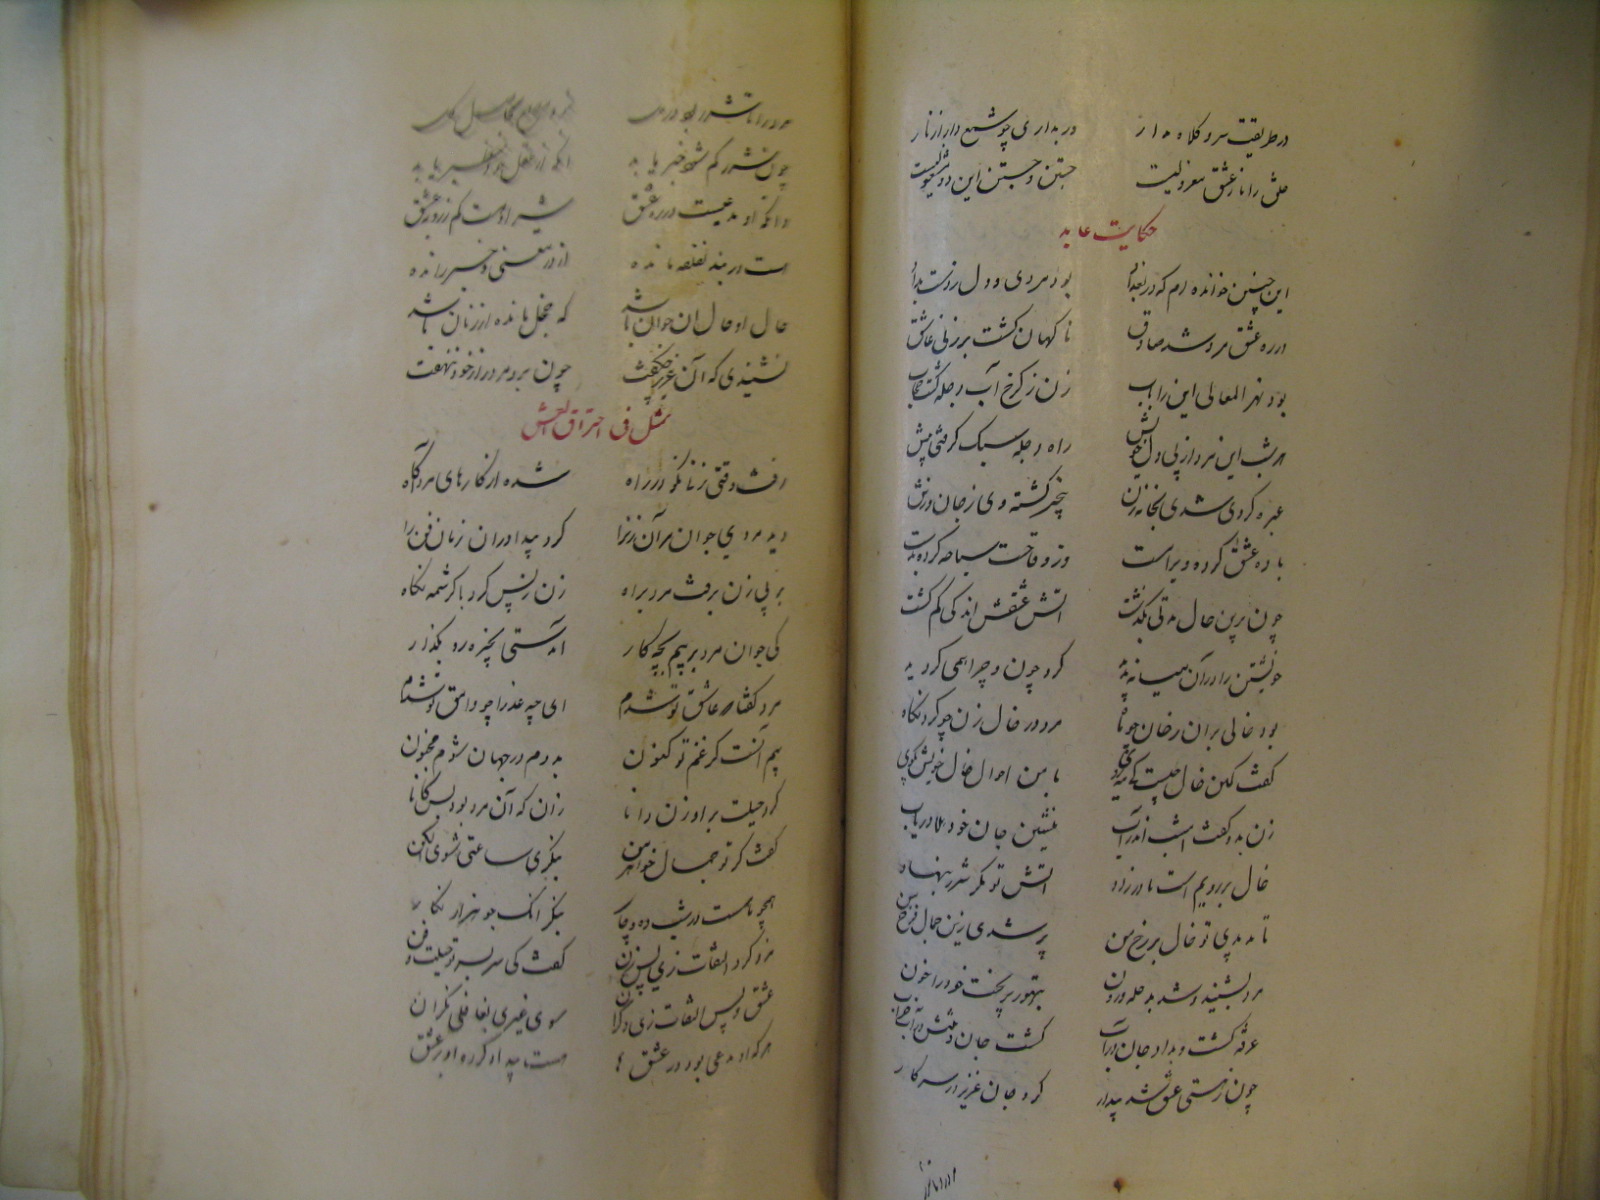 در طریقت سر و کلاه مدار ور بداری چو شمع دار از نار
خلق را ناز عشق معزولیت جستن و جستن این دو مشغولیت
حکایت عابد
این چنین خوانده ام که در بغداد بود مردی و دل ز دست بداد
در ره عشق مرد شد صادق ناگهان گشت بر زنی عاشق
بود نهر المعالی این را باب زن ز کرخ آب دجله گشت حجاب
هر شب این مرد از پی دل خویش راه دجله سبک گرفتی پیش
عبره کردی شدی بخانه زن بیخبر گشته وی از جان و ز تن
باده عشق کرده ویرا مست وز وقاحت سباحه کرده بدست
چون برین حال مدتی بگذشت آتش عشقش اندکی کم گشت
خویشتن را در آن میانه بدید گرد چون و چرا همی گردید
بود خالی بران رخان چو ماه مرد در خال زن چو کرد نگاه
گفت کاین خال چیست ای مه روی با من احوال خال خویش بگوی
زن بدو گفت امشب اندر آب منشین جان خود هلا دریاب
خال بر رویم است مادرزاد آتش تو مگر شرر بنهاد
تا بدیدی تو خال بر رخ من پر شدی زین جمال فرخ من
مرد نشنید و شد بدجله درون بتهور بریخت خود را خون
غرقه گشت و بداد جان در آب گشت جان و تنش در آب خراب
چون ز مستی عشق شد بیدار کرد جان عزیز در سر کار
مرد را تا شرر بود در دل
چون شرر کم شود خبر یابد
وانکه او مدعیست در ره عشق
است در بند نفقه مانده از در معنی و خبر رانده
حال او حال آن جوان باشد که خجل مانده از زنان باشد
نشنیدی که آن عزیز چگفت چون برو مرد راز خود ننهفت
مثل فی احتراق العشق
رفت وقتی زنی نکو در راه شده از کارهای مرد آگاه
دید مردی جوان مر آن زن را کرد پیدا در آن زمان فن را
بر پی زن برفت مرد براه زن ز پس کرد با کرشمه نگاه
کی جوان مرد بر پیم بچه کار آمدستی بخیره رو بگذار
مرد گفتا که عاشق تو شدم ای چه عذرا چو وامق تو شدم
بیم آنست کز غم تو کنون بدوم در جهان شوم مجنون
کرد حیلت برو زن دانا زان که آن مرد بود بس کانا
گفت گر تو جمال خواهر من بنگری ساعتی شوی الکن
همچو ماهست در شب ده و چار بنگر آنک چو صد هزار نگار
مرد کرد التفات زی پس زن گفت کی سر بسر تو حیلت و فن
عشق و پس التفات زی دگران سوی غیری بغافلی نگران
هر که او مدعی بود در عشق هست بیداد کرده او بر عشق